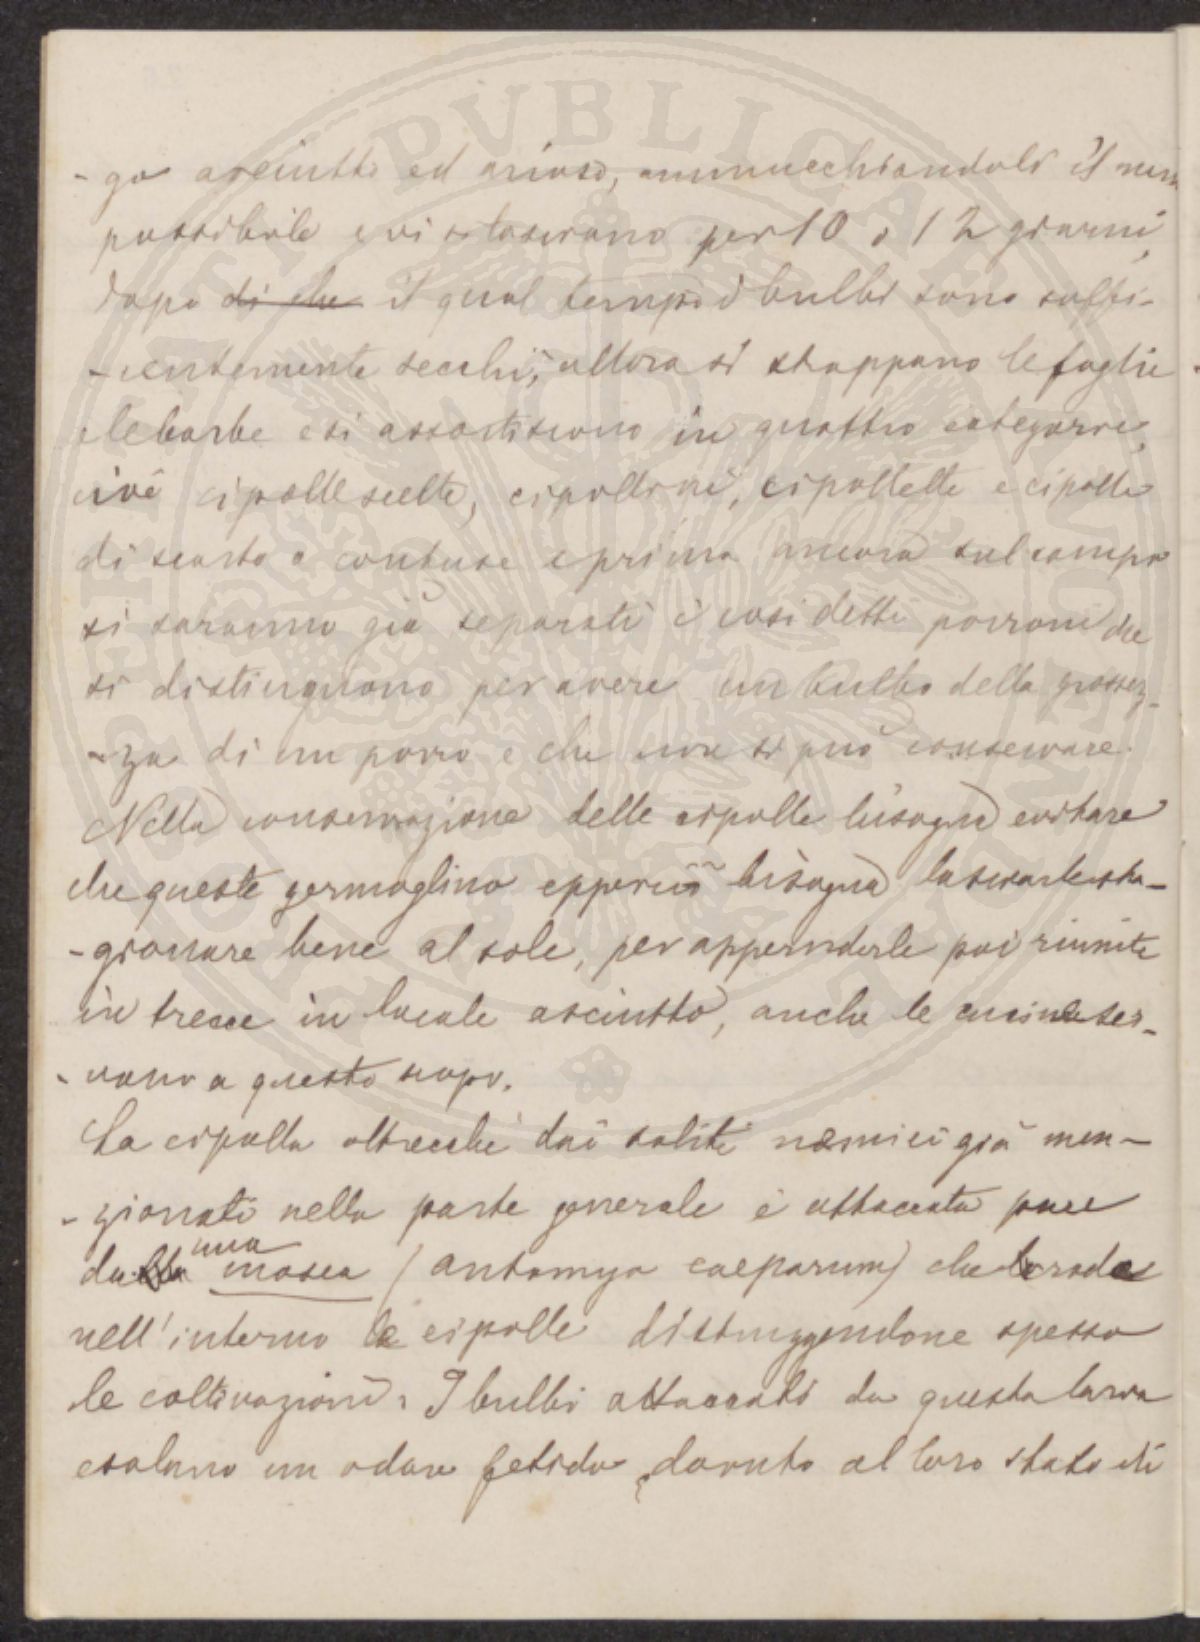 -go asciutto ed arioso, ammucchiandoli il men
possibile e vi si lasciano per 10 o 12 giorni,
dopo di che il qual tempo i bulbi sono suffi-
-cientemente secchi, allora si strappano le foglie
e le barbe e si assortiscono in quattro categorie,
cioè cipolle scelte, cipolloni, cipollette e cipolle
di scarto o contuse e prima ancora sul campo
si saranno già separati i così detti porroni che
si distinguono per avere un bulbo della grossez-
-za di un porro e che non si può conservare.
Nella conservazione delle cipolle bisogna evitare
che queste germoglino epperciò bisogna lasciarle sta-
-gionare bene al sole, per appenderle poi riunite
in trecce in locale asciutto, anche le cucine ser-
-vono a questo scopo.
La cipolla oltrecché dai soliti nemici già men-
-zionati nella parte generale è attaccata pure
dalla una mosca (antomya caeparum) che rode
nell'interno le cipolle distruggendone spesso
le coltivazioni. I bulbi attaccati da questa larva
esalano un odore fetido, dovuto al loro stato di
PVBLICAE